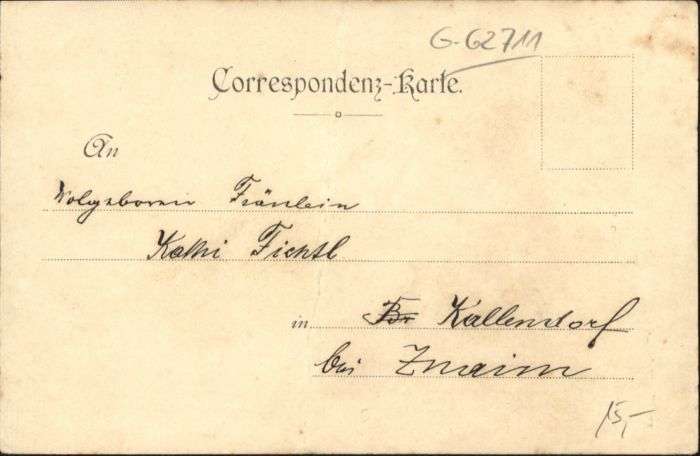 G-62711
Correspondenz-Karte.
An
Wolgeboren Fräulein
Kathi Fichtl
in Br Kallendorf
bei Znaim
15,-